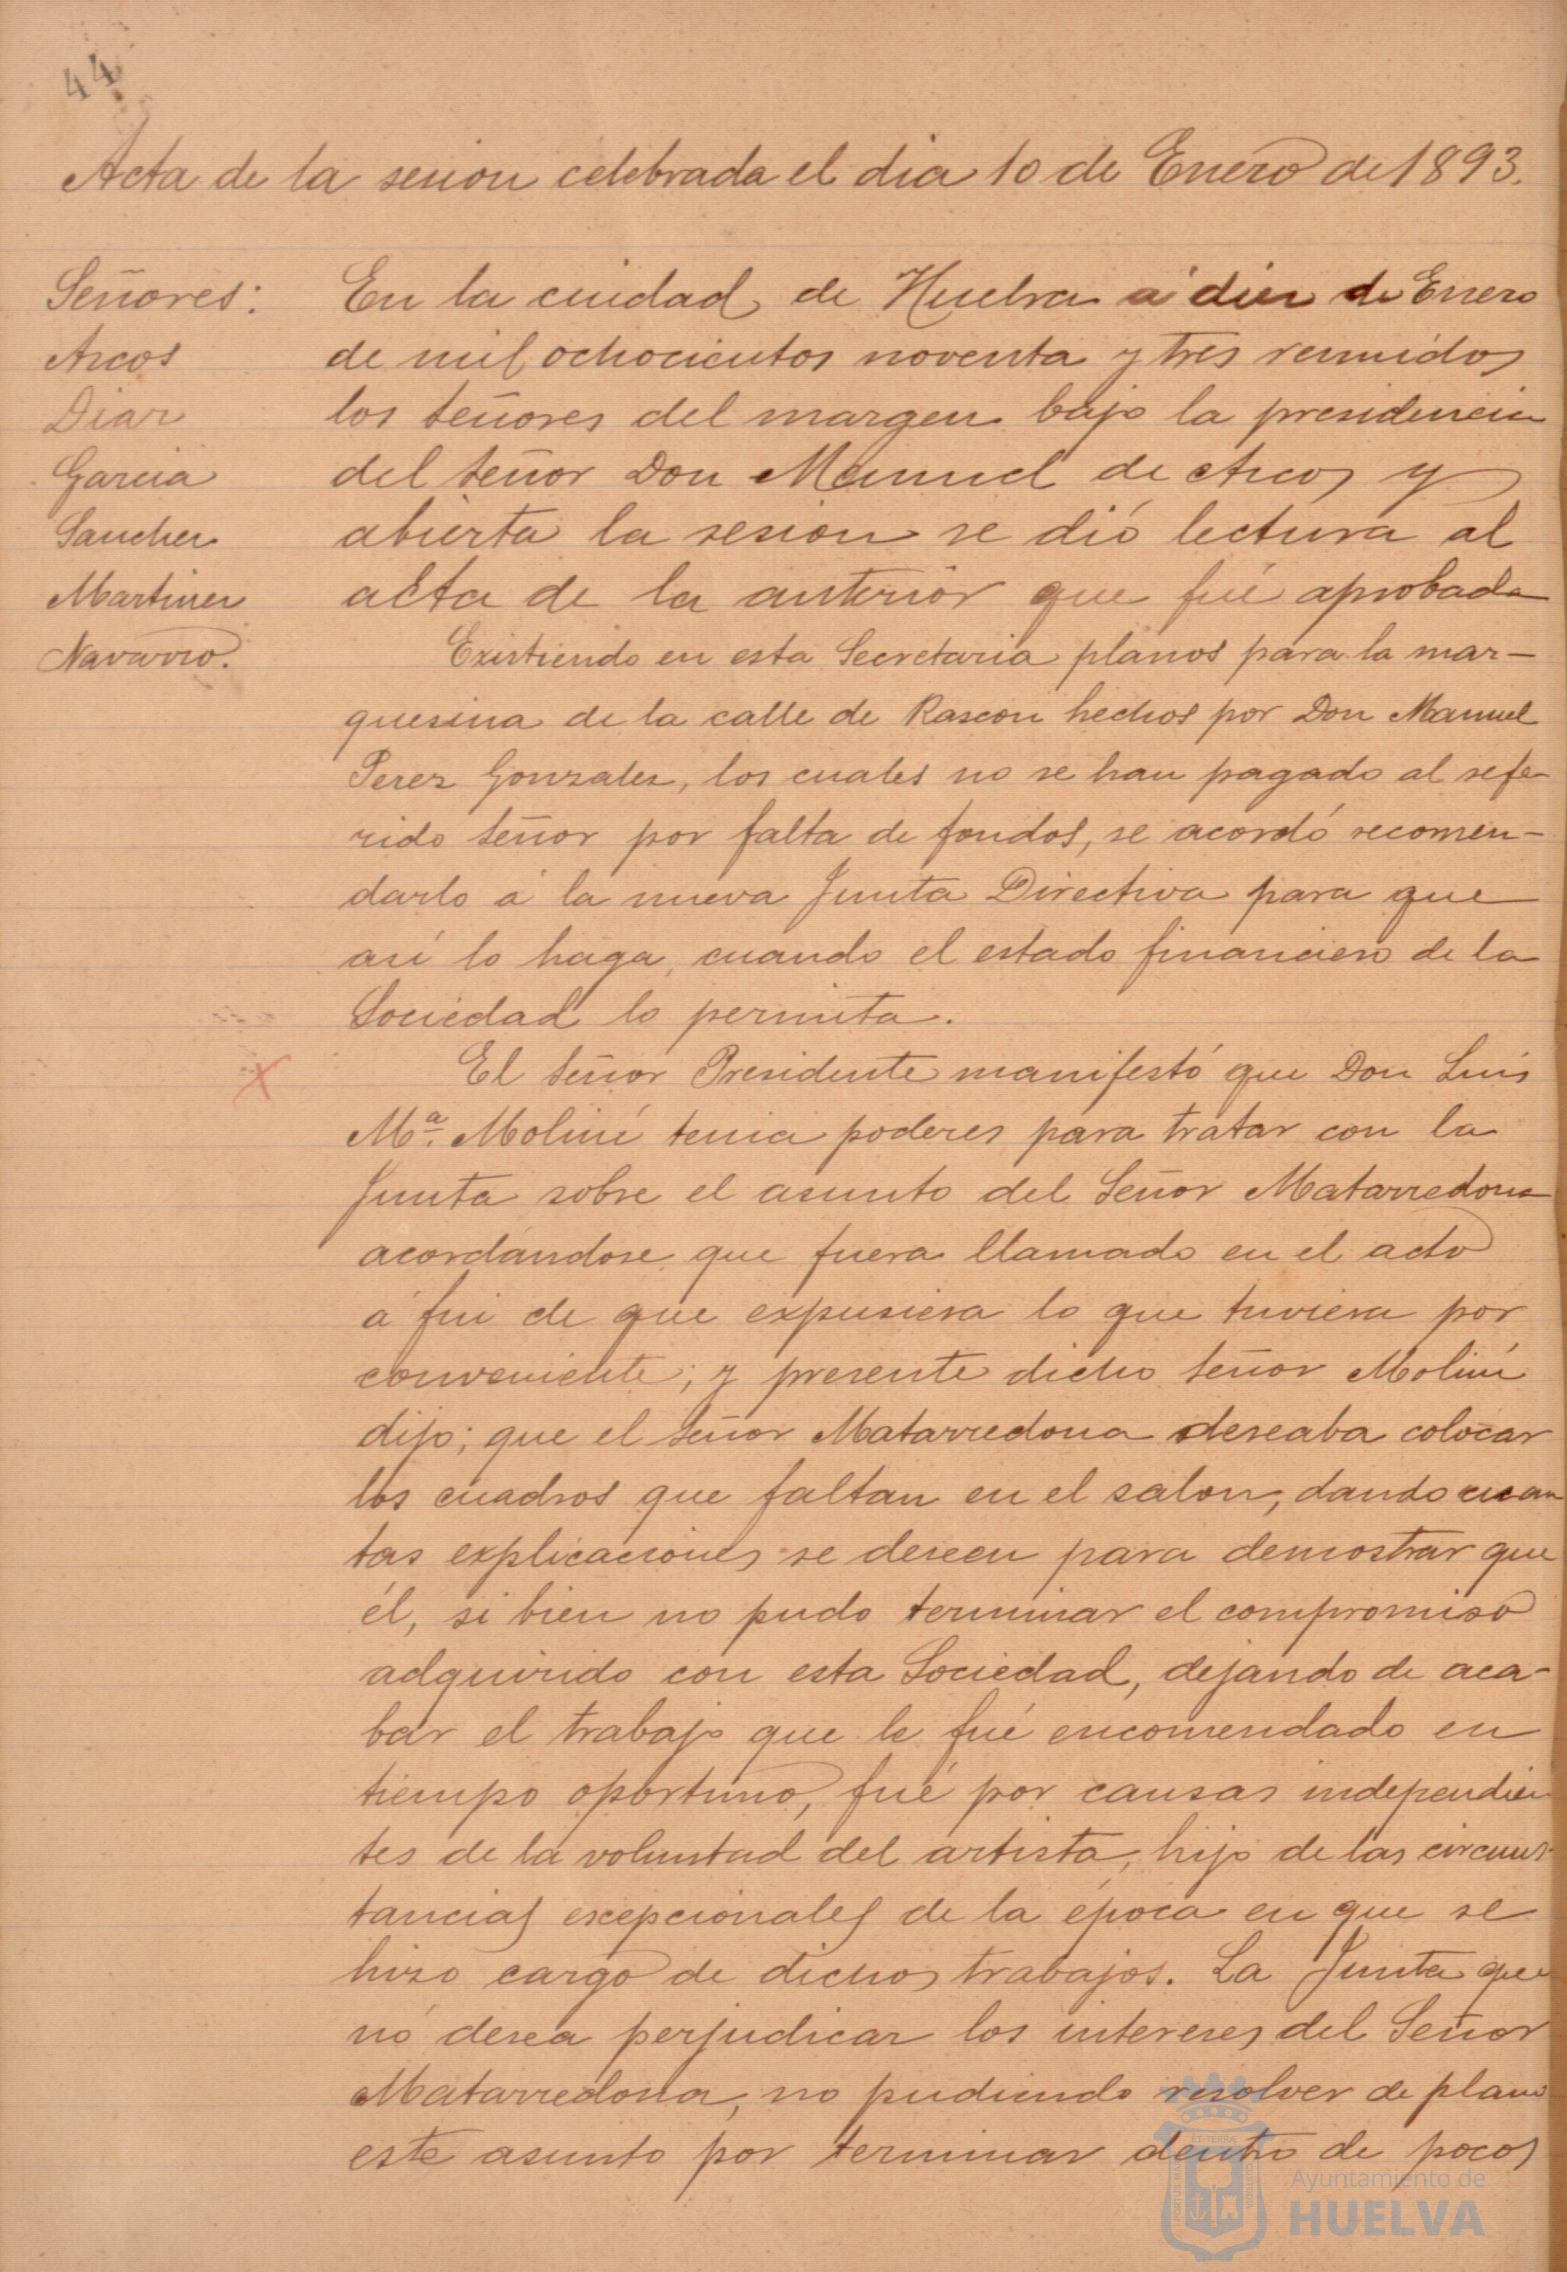 44
Acta de la sesion celebrada el dia 10 de Enero de 1893.
Señores:
Arcos
Diaz
Garcia
Sanchez
Martinez
Navarro.
En la ciudad de Huelva á diez de Enero
de mil ochocientos noventa y tres reunidos
los señores del margen bajo la presidencia
del señor Don Manuel de Arcos y
abierta la sesion se dió lectura al
acta de la anterior que fué aprobada
Existiendo en esta Secretaria planos para la mar-
quesina de la calle de Rascon hechos por Don Manuel
Perez Gonzalez, los cuales no se han pagado al refe-
rido señor por falta de fondos, se acordó recomen-
darlo á la nueva Junta Directiva para que
así lo haga, cuando el estado financiero de la
Sociedad lo permita.
El señor Presidente manifestó que Don Luis
Mª. Moliní tenia poderes para tratar con la
Junta sobre el asunto del Señor Matarredona
acordándose que fuera llamado en el acto
á fin de que expusiera lo que tuviera por
conveniente; y presente dicho señor Moliní
dijo; que el señor Matarredona deseaba colocar
los cuadros que faltan en el salon, dando cuan
tas explicaciones se deseen para demostrar que
él, si bien no pudo terminar el compromiso
adquirido con esta Sociedad, dejando de aca-
bar el trabajo que le fué encomendado en
tiempo oportuno, fué por causas independien
tes de la voluntad del artista, hijo de las circuns-
tancias escepcionales de la época en que se
hizo cargo de dichos trabajos. La Junta que
nó desea perjudicar los intereses del Señor
Matarredona, no pudiendo resolver de plano
este asunto por terminar dentro de pocos
Ayuntamiento de
HUELVA